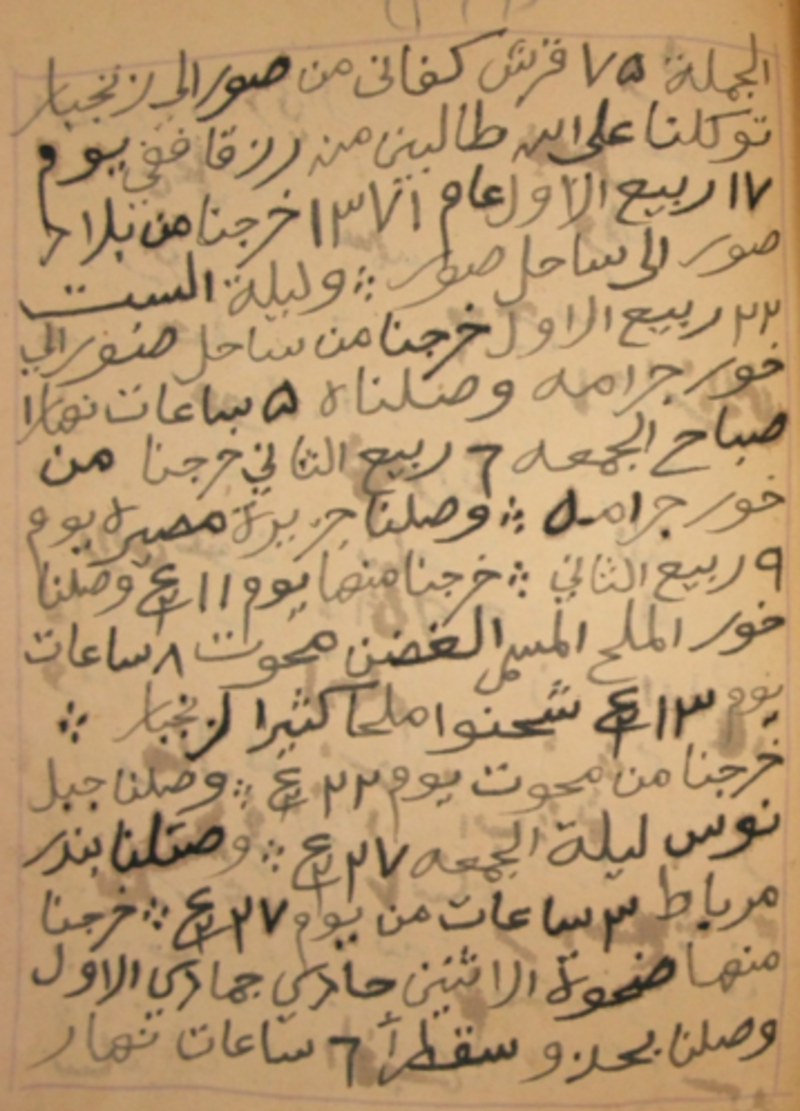 الجملة ٧٥ قرش كفاني من صور الى زنجبار
توكلنا على الله طالبين من رزقا ففي يوم
١٧ ربيع الاول عام ١٣٧١ خرجنا من بلاد
صور الى ساحل صور ؞ وليلة الست
٢٢ ربيع الاول خرجنا من ساحل صور الي
خور جرامه وصلناه ٥ ساعات نهارا
صباح الجمعه ٦ ربيع الثاني خرجنا من
خور جرامه ؞ وصلنا جزيرة مصيرة يوم
٩ ربيع الثاني ؞ خرجنا منها يوم ١١ ع٢ وصلنا
خور الملح المسمى الغضن محوت ٨ ساعات
يوم ١٣ ع٢ شحنوا ملحا كثيرا لزنجبار ؞
خرجنا من محوت يوم ٢٢ ع٢ ؞ وصلنا جبل
نوس ليلة الجمعه ٢٧ ع٢ ؞ وصلنا بندر
مرباط ٣ ساعات من يوم ٢٧ ع٢ ؞ خرجنا
منها ضحوة الاثنين حادي جمادى الاول
وصلنا بحدو سقطرأ ٦ ساعات نهار